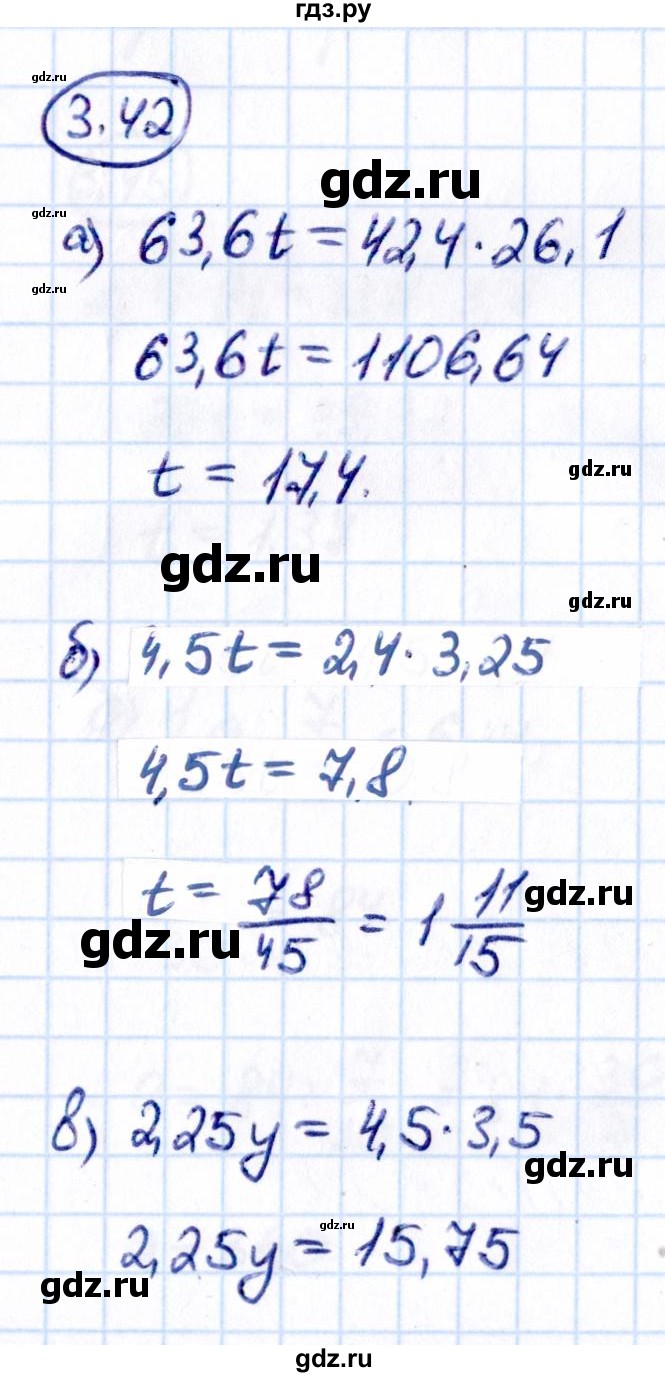 гдз.ру
gdz.ru
3.42
gdz.ru
gdz.ru
а) 63,6t = 42,4 · 26,1
gdz.ru
63,6t = 1106,64
t = 17,4.
gdz.ru
gdz.ru
gdz.ru
б) 4,5t = 2,4 · 3,25
4,5t = 7,8
t = 78/45 = 1 11/15
gdz.ru
gdz.ru
в) 2,25y = 4,5 · 3,5
gdz.ru
gdz.ru
2,25y = 15,75
gdz.ru
gdz.ru